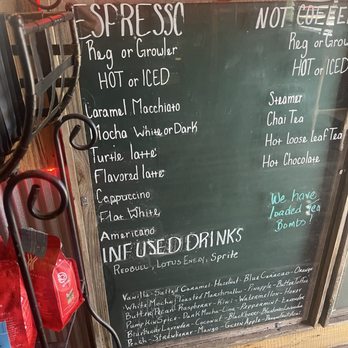 ESPRESSO
Reg or Growler
HOT or ICED
Caramel Macchiato
Mocha White or Dark
Turtle latte
Flavored latte
Cappuccino
Flat White
Americano
NOT COFFEE
Reg or Grow
HOT or ICED
Steamer
Chai Tea
Hot loose leaf Tea
Hot Chocolate
We have
loaded Tea
Bombs!
INFUSED DRINKS
REDBULL, LOTUS Energy, Sprite
Vanilla - Salted Caramel - Hazelnut - Blue Curacao - Orange
White Mocha - Toasted Marshmallow - Pineapple - Butter Toffee
Butter Pecan - Raspberry - Kiwi - Watermelon - Honey
Pumpkin Spice - Dark Mocha - Lime - Peppermint - Lavender
Blueberry - Lavender - Coconut - Blackberry
Peach - Strawberry - Mango - Guava - Apple - Pomegranate